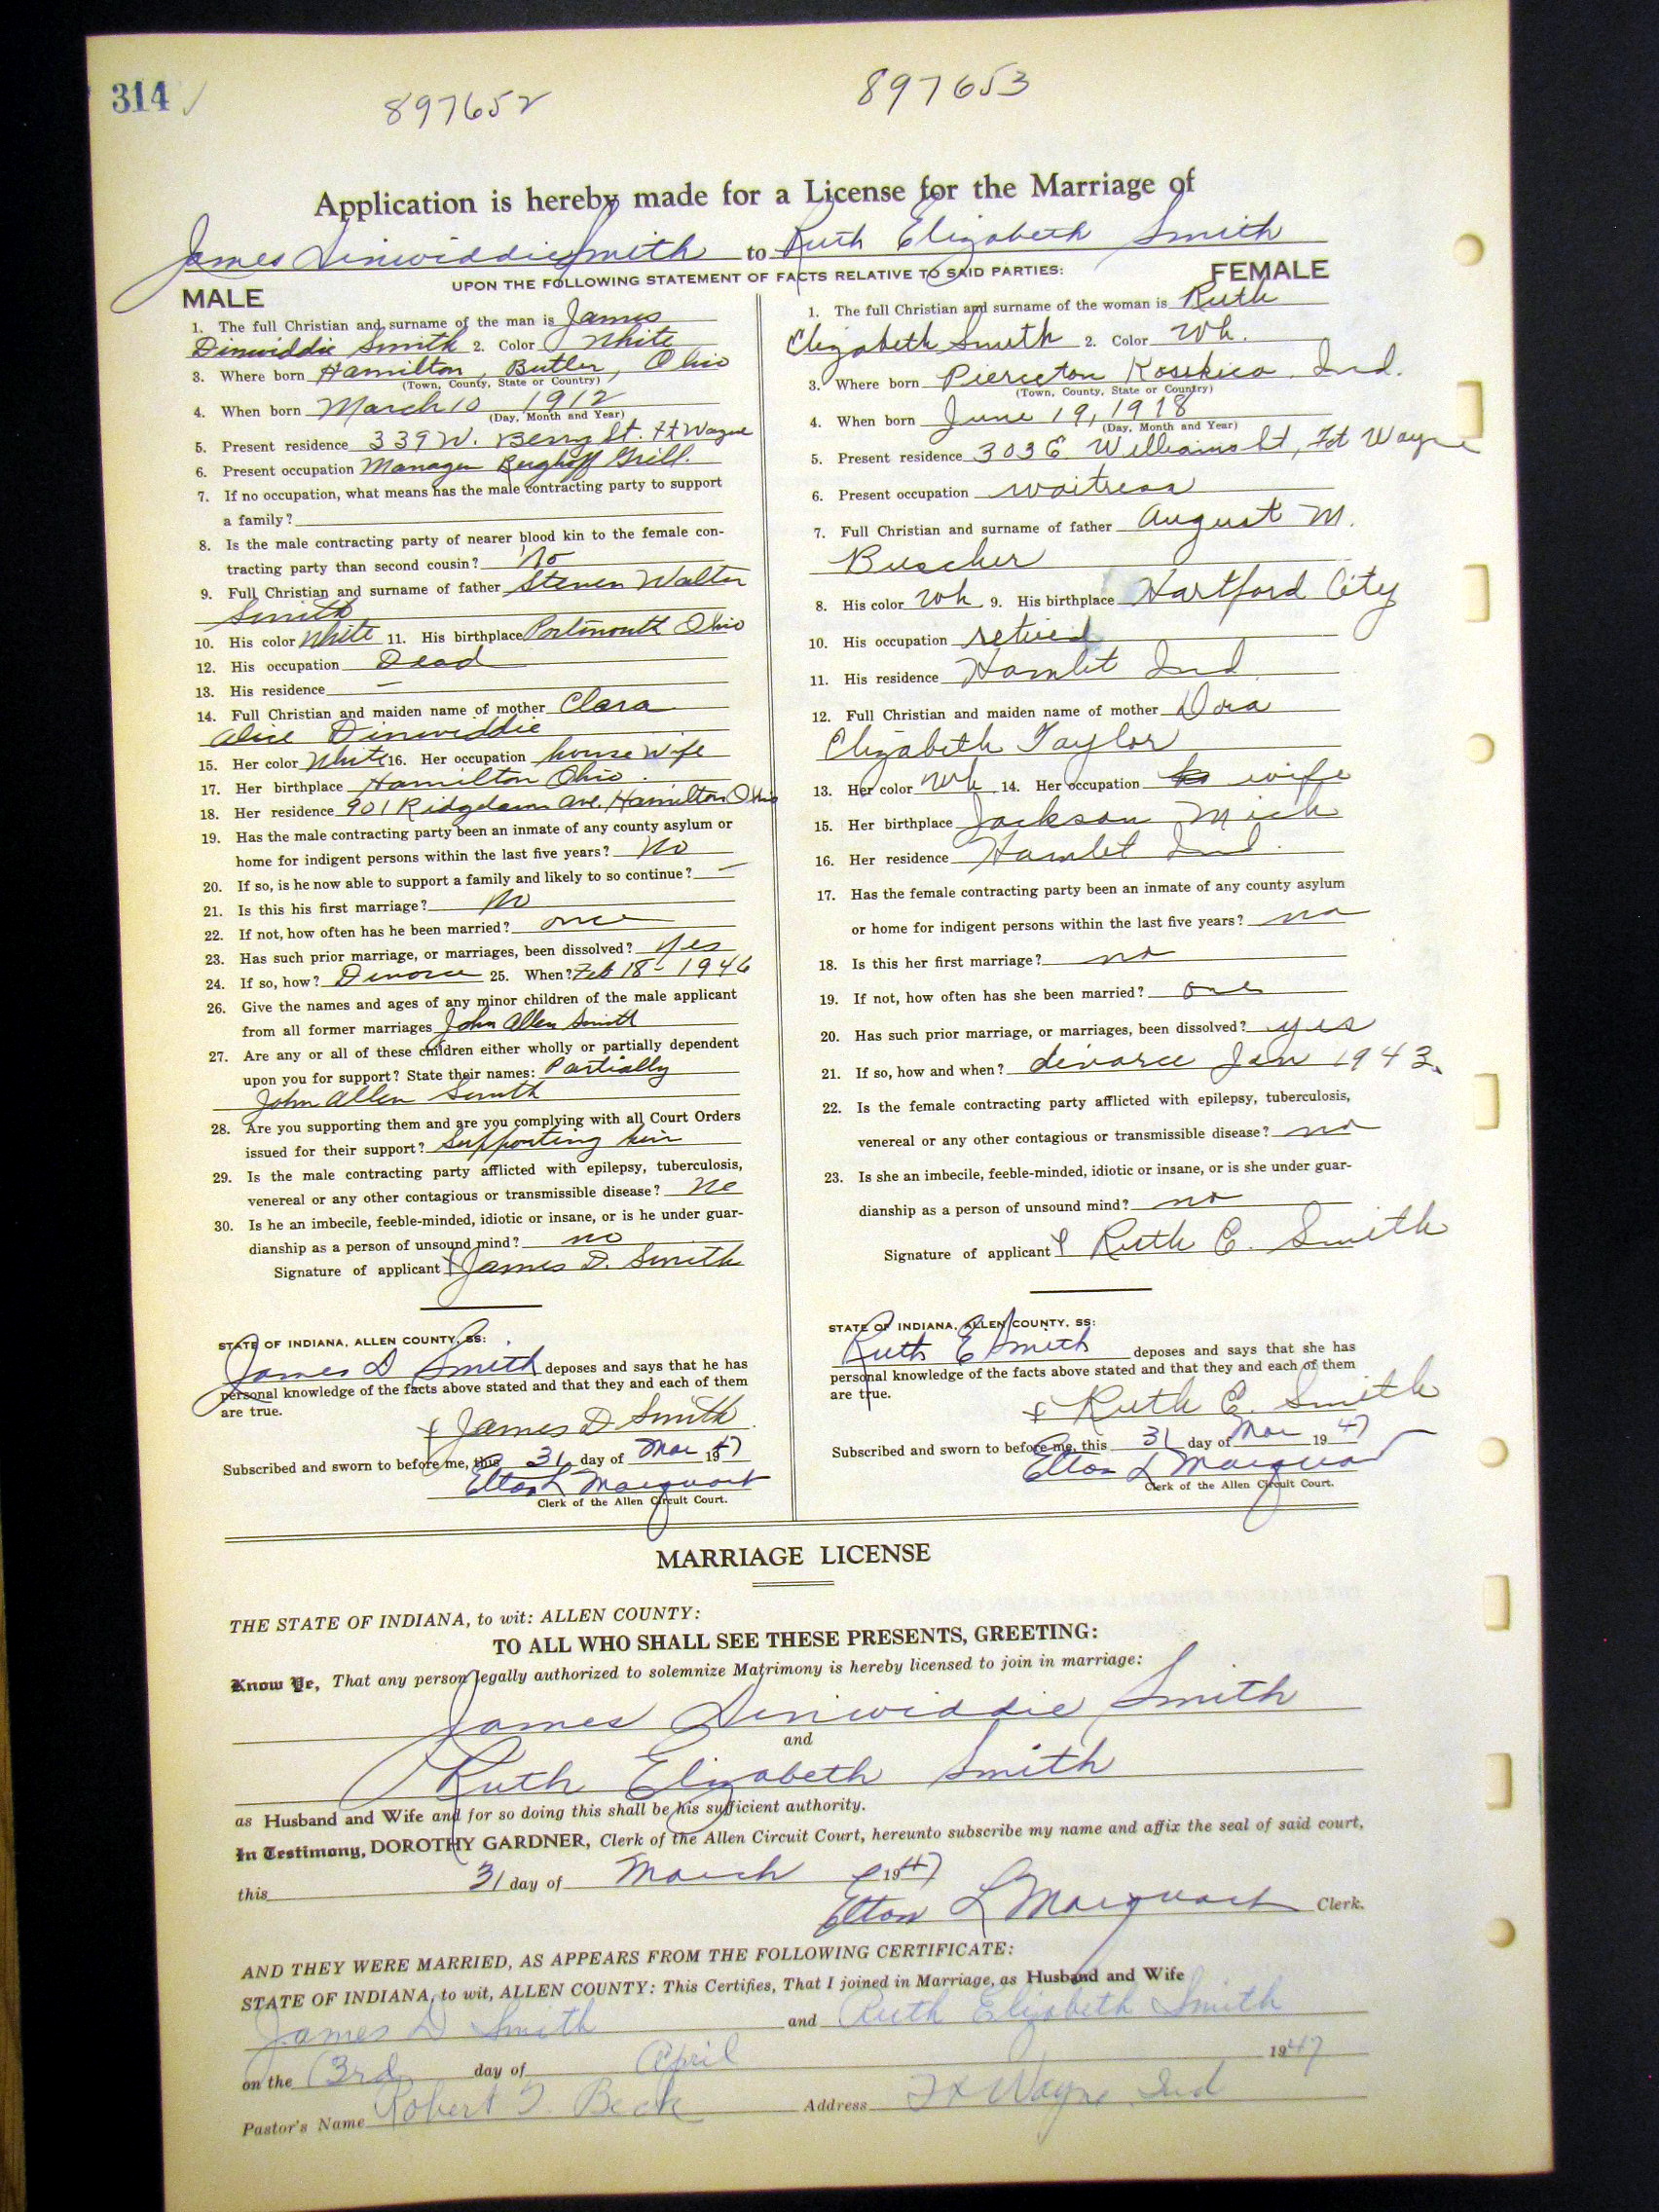 314
897652
897653
Application is hereby made for a License for the Marriage of
James Dinwiddie Smith to Ruth Elizabeth Smith
UPON THE FOLLOWING STATEMENT OF FACTS RELATIVE TO SAID PARTIES:
MALE
1. The full Christian and surname of the man is James
Dinwiddie Smith 2. Color White
3. Where born Hamilton, Butler, Ohio
(Town, County, State or Country)
4. When born March 10 1912
(Day, Month and Year)
5. Present residence 339 W. Berry St. Ft Wayne
6. Present occupation Manager Berghoff Grill.
7. If no occupation, what means has the male contracting party to support
a family?
8. Is the male contracting party of nearer blood kin to the female con-
tracting party than second cousin? No
9. Full Christian and surname of father Steven Walter
Smith
10. His color White 11. His birthplace Portsmouth Ohio
12. His occupation Dead
13. His residence —
14. Full Christian and maiden name of mother Clara
Alice Dinwiddie
15. Her color White 16. Her occupation house wife
17. Her birthplace Hamilton Ohio.
18. Her residence 901 Ridgelawn Ave. Hamilton Ohio
19. Has the male contracting party been an inmate of any county asylum or
home for indigent persons within the last five years? No
20. If so, is he now able to support a family and likely to so continue? —
21. Is this his first marriage? No
22. If not, how often has he been married? once
23. Has such prior marriage, or marriages, been dissolved? yes
24. If so, how? Divorce 25. When? Feb 18 - 1946
26. Give the names and ages of any minor children of the male applicant
from all former marriages John Allen Smith
27. Are any or all of these children either wholly or partially dependent
upon you for support? State their names: Partially
John Allen Smith
28. Are you supporting them and are you complying with all Court Orders
issued for their support? Supporting him
29. Is the male contracting party afflicted with epilepsy, tuberculosis,
venereal or any other contagious or transmissible disease? No
30. Is he an imbecile, feeble-minded, idiotic or insane, or is he under guar-
dianship as a person of unsound mind? no
Signature of applicant James D. Smith
STATE OF INDIANA, ALLEN COUNTY, SS:
James D Smith deposes and says that he has
personal knowledge of the facts above stated and that they and each of them
are true.
James D Smith
Subscribed and sworn to before me, this 31 day of Mar 1947
Elton L Marquart
Clerk of the Allen Circuit Court.
FEMALE
1. The full Christian and surname of the woman is Ruth
Elizabeth Smith 2. Color Wh.
3. Where born Pierceton Ind.
(Town, County, State or Country)
4. When born June 19, 1918
(Day, Month and Year)
5. Present residence 303 E Williams St, Ft Wayne
6. Present occupation waitress
7. Full Christian and surname of father August M.
Buscher
8. His color Wh 9. His birthplace Hartford City
10. His occupation retired
11. His residence Hamlet Ind
12. Full Christian and maiden name of mother Dora
Elizabeth Taylor
13. Her color Wh 14. Her occupation wife
15. Her birthplace Jackson Mich
16. Her residence Hamlet Ind.
17. Has the female contracting party been an inmate of any county asylum
or home for indigent persons within the last five years? no
18. Is this her first marriage? no
19. If not, how often has she been married? one
20. Has such prior marriage, or marriages, been dissolved? yes
21. If so, how and when? divorce Jan 1943.
22. Is the female contracting party afflicted with epilepsy, tuberculosis,
venereal or any other contagious or transmissible disease? no
23. Is she an imbecile, feeble-minded, idiotic or insane, or is she under guar-
dianship as a person of unsound mind? no
Signature of applicant Ruth E. Smith
STATE OF INDIANA, ALLEN COUNTY, SS:
Ruth E Smith deposes and says that she has
personal knowledge of the facts above stated and that they and each of them
are true.
Ruth E. Smith
Subscribed and sworn to before me, this 31 day of Mar 1947
Elton L Marquart
Clerk of the Allen Circuit Court.
MARRIAGE LICENSE
THE STATE OF INDIANA, to wit: ALLEN COUNTY:
TO ALL WHO SHALL SEE THESE PRESENTS, GREETING:
Know Ye, That any person legally authorized to solemnize Matrimony is hereby licensed to join in marriage:
James Dinwiddie Smith
and
Ruth Elizabeth Smith
as Husband and Wife and for so doing this shall be his sufficient authority.
In Testimony, DOROTHY GARDNER, Clerk of the Allen Circuit Court, hereunto subscribe my name and affix the seal of said court,
this 31 day of March 1947
Elton L Marquart Clerk.
AND THEY WERE MARRIED, AS APPEARS FROM THE FOLLOWING CERTIFICATE:
STATE OF INDIANA, to wit, ALLEN COUNTY: This Certifies, That I joined in Marriage, as Husband and Wife
James D Smith and Ruth Elizabeth Smith
on the 3rd day of April 1947
Pastor's Name Robert Beck Address Ft Wayne Ind